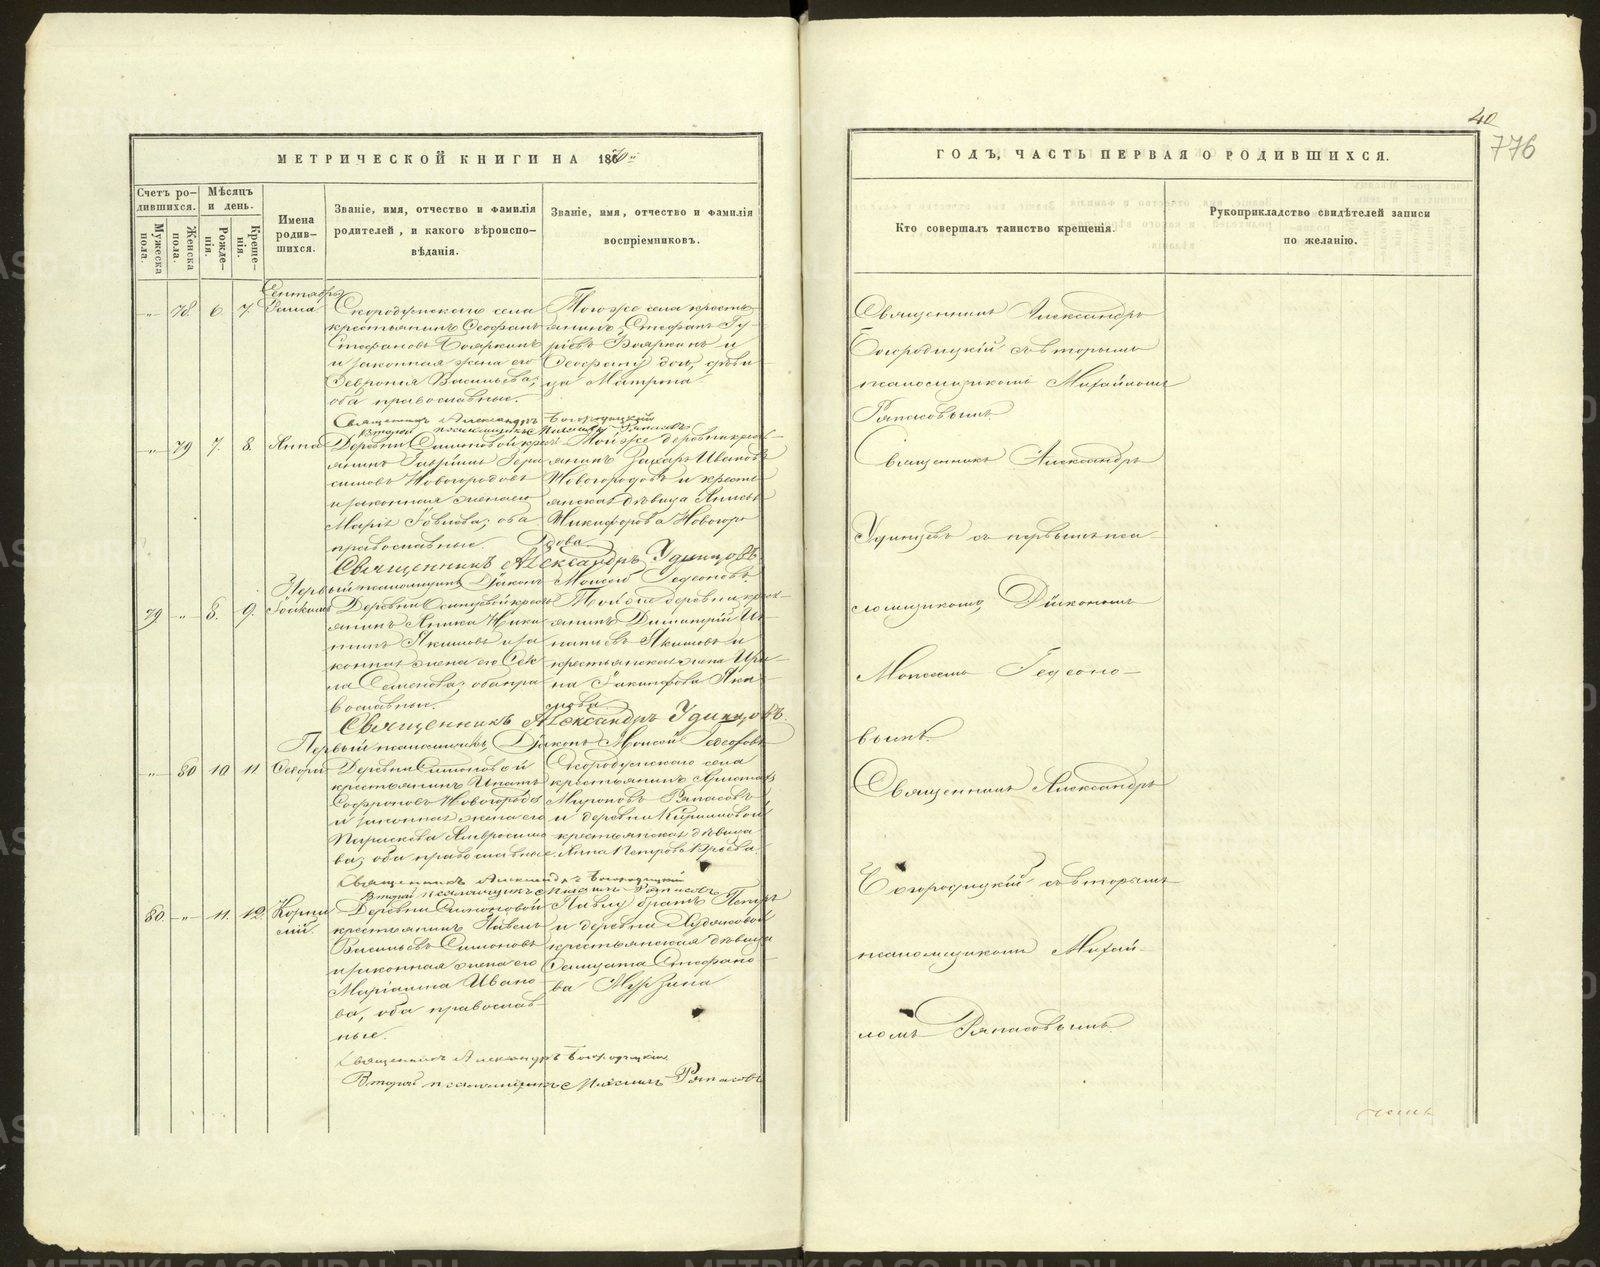 МЕТРИЧЕСКОЙ КНИГИ НА 1870й
Счетъ ро-
дившихся.
Мужеска
пола.
Женска
пола.
Мѣсяцъ
и день.
Рожде-
нія.
Креще-
нія.
Имена
родив-
шихся.
Званіе, имя, отчество и фамилія
родителей, и какого вѣроиспо-
вѣданія.
Званіе, имя, отчество и фамилія
воспріемниковъ.
Сентябрь
78 6 7
Скородумскаго села
крестьянинъ Ѳеофанъ
Стефановъ Бояркинъ
и законная жена его
Февронія Васильева;
оба православные.
Тогоже села кресть-
янинъ Стефанъ Гу-
рьевъ Бояркинъ и
Ѳеофану дочь, дѣви-
ца Матрона
Священникъ Александръ Богородицкій
Второй псаломщикъ Михаилъ Ряпасовъ
79 7. 8. Анна
Деревни Симоновой крест-
янинъ Гавріилъ Гера-
симовъ Новогородовъ
и законная жена его
Марія Іовлева; оба
православные.
Тойже деревни крест-
янинъ Захаръ Ивановъ
Новогородовъ и кресть
янская дѣвица Анисья
Никифорова Новогоро
дова.
Священникъ Александръ Удинцовъ
Первый псаломщикъ Діаконъ Моисей Гедеоновъ
79 8. 9. Іоакимъ
Деревни Осинцевой крест-
янинъ Аника Ники
тинъ Якимовъ и за
конная жена его Ѳек
ла Семенова; оба пра
вославные.
Той же деревни крест-
янинъ Димитрій Иг-
натьевъ Якимовъ и
крестьянская жена Ири-
на Іакинфова Яки
мова.
Священникъ Александръ Удинцовъ.
Первый псаломщикъ Діаконъ Моисей Гедеоновъ
80 10 11
Деревни Симоновой
крестьянинъ Игнатъ
Софроновъ Новогородо
и законная жена его
Параскева Амвросимо
ва; оба православные.
Скородумскаго села
крестьянинъ Аристар
Мироновъ Ряпасовъ
и деревни Кириловой
крестьянская дѣвица
Анна Петрова Юрьева
Священникъ Александръ Богородицкій
Второй псаломщикъ Михаилъ Ряпасовъ
80. 11. 12. Корни
лій.
Деревни Симоновой
крестьянинъ Павелъ
Васильевъ Симоновъ
и законная жена его
Маріанна Ивано
ва, оба православ-
ные.
Павлу братъ Петръ
и деревни Худяковой
крестьянская дѣвица
Стефано-
ва Мурзина
Священникъ Александръ Богородицкій
Второй псаломщикъ Михаилъ Ряпасовъ
40
776
ГОДЪ, ЧАСТЬ ПЕРВАЯ О РОДИВШИХСЯ.
Кто совершалъ таинство крещенія.
Рукоприкладство свидѣтелей записи
по желанію.
Священникъ Александръ
Богородицкій съ вторымъ
псаломщикомъ Михаиломъ
Ряпасовымъ
Священникъ Александръ
Удинцевъ съ первымъ пса-
ломщикомъ, Діакономъ
Моисеемъ Гедеоно-
вымъ.
Священникъ Александръ
Богородицкій съ вторымъ
псаломщикомъ Михаи-
ломъ Ряпасовымъ.
METRIKI.GASO-URAL.RU